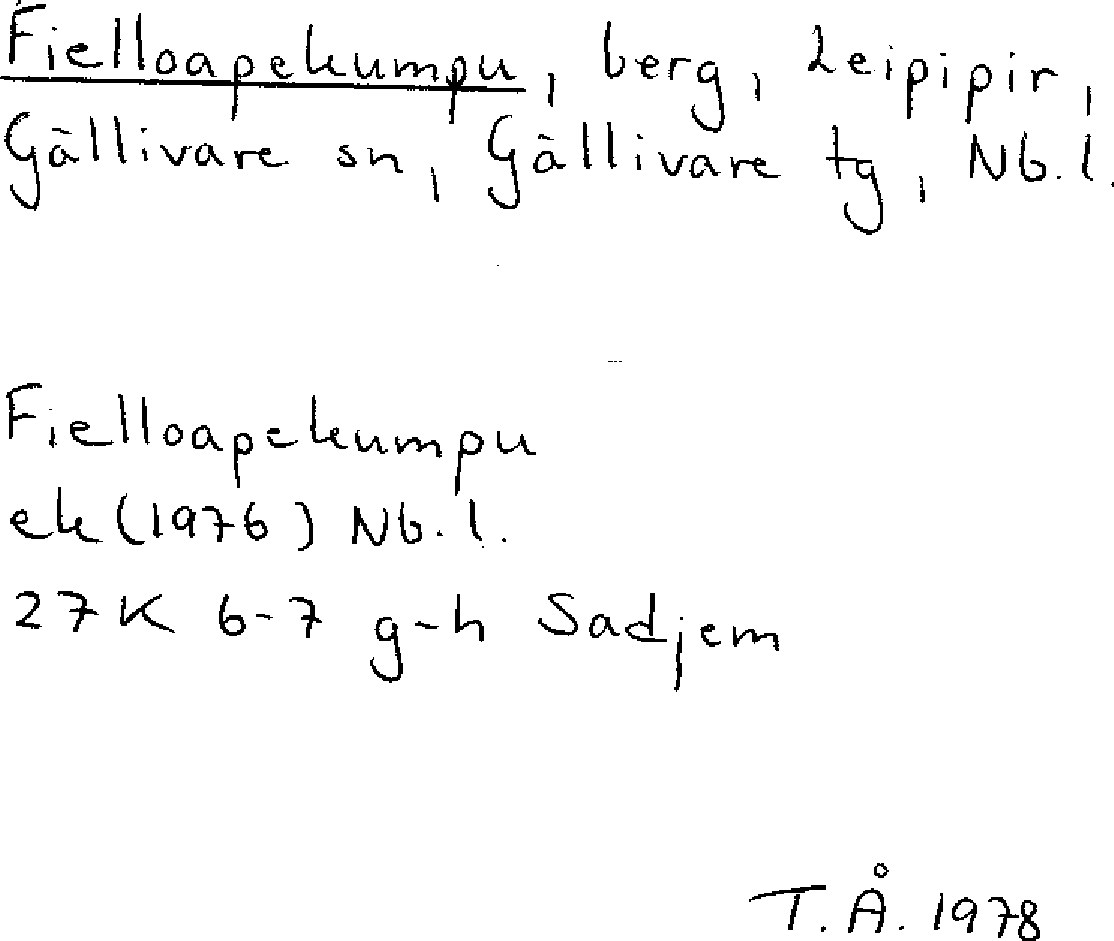 Fielloapekumpu, berg, Leipipir,
Gällivare sn, Gällivare tg, Nb.l.
Fielloapekumpu
ek (1976) Nb.l.
27K 6-7 g-h Sadjem
T.Å. 1978